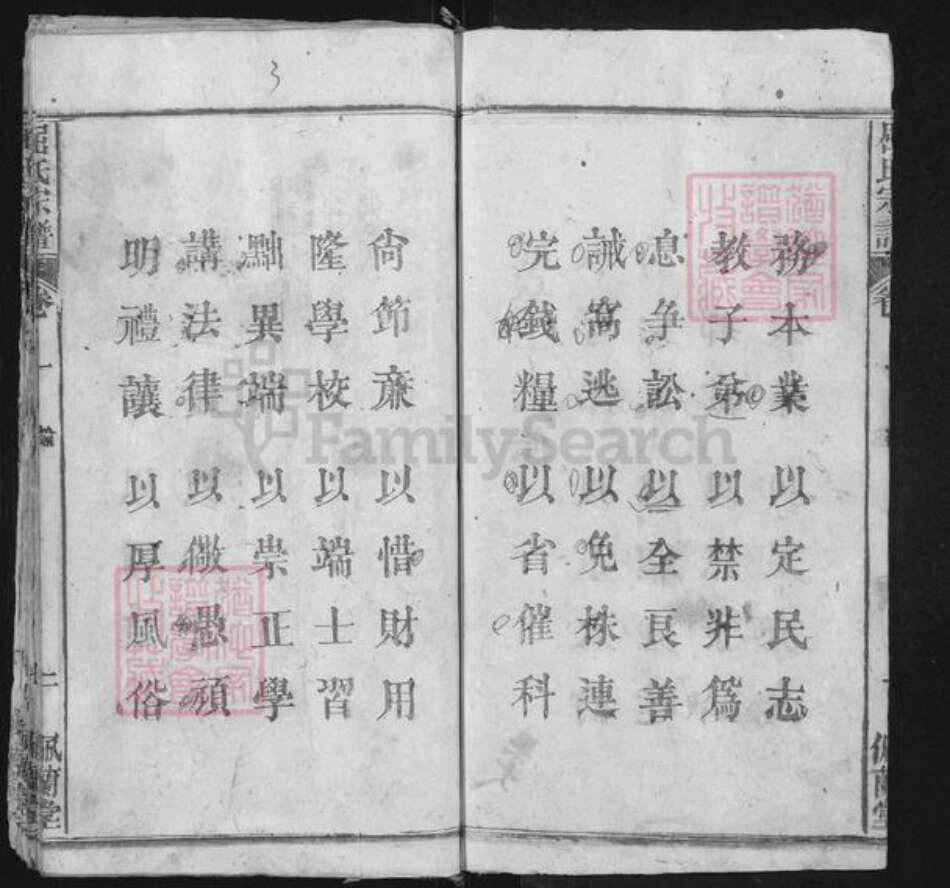 務本業以定民志
教子弟禁非為
息爭訟以全良善
誡窩逃以免株連
完錢糧以省催科
尚節亷以惜財用
隆學校以端士習
黜異端以崇正學
講法律以儆愚頑
明禮讓以厚風俗
屈氏宗譜
卷一
佩蘭堂
3
FamilySearch